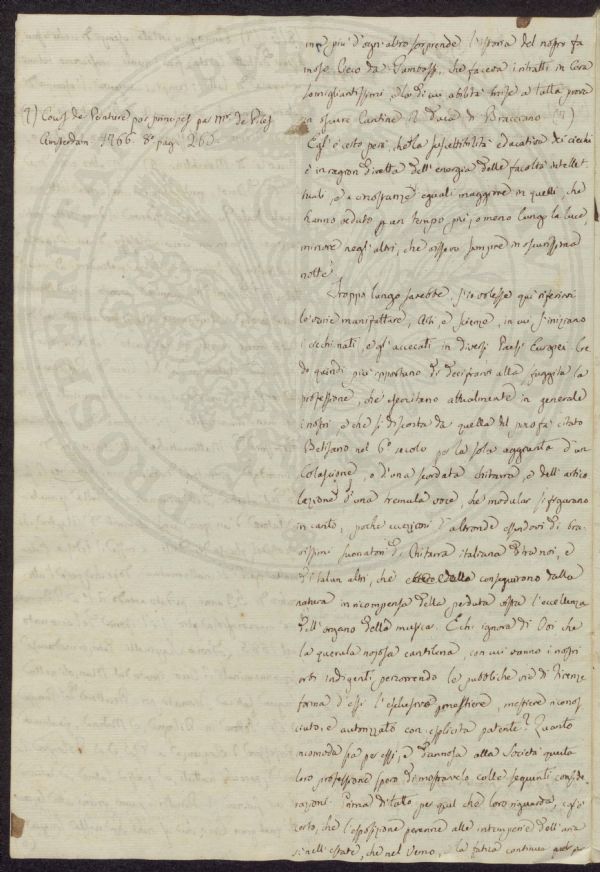 7) Cours de Peinture par principes par Mr. de Piles
Amsterdam 1766. 8° pag. 260
me più d'ogni altro sorprende l'istoria del nostro fa
moso Cieco da Gambassi, che faceva i ritratti in Cera
somigliantissimi, della di cui abilità mise a tutta prova
in oscure Cantine il Duca di Bracciano (7)
Egl'è certo però, che la suscettibilità educativa dei ciechi
è in ragion diretta dell'energia delle facoltà intellet
tuali, e a circostanze eguali maggiore in quelli, che
hanno veduto per un tempo più, o meno lungo la luce,
minore negl'altri, che vissero sempre in oscurissima
notte.
Troppo lungo sarebbe, s'io volesse qui riferirvi
le varie manifatture, Arti, e Scienze, in cui s'iniziano
i ciechi nati, e gl'accecati in diversi Paesi Europei. Cre
do quindi più opportuno di decifrarvi alla fuggita la
professione, che esercitano attualmente in generale
i nostri, e che si discosta da quella del più fa citato
Belisario nel 6° secolo per la sola aggiunta d'un
Colascione, o d'una scordata chitarra, e dell'artico
lazione d'una tremula voce, che modular si figurano
in canto, poche eccezioni d'altronde essendovi di bra-
vissimi suonatori di Chitarra italiana tra noi, e
di talun altri, che conseguirono dalla
natura in ricompensa della perduta vista l'eccellenza
dell'organo della musica. E chi ignora di Voi che
la querula nojosa cantilena, con cui vanno i nostri
orbi indigenti percorrendo le pubbliche vie di Firenze
forma d'essi l'esclusivo mestiere, mestiere ricono-
sciuto, e autorizzato con esplicita patente? Quanto
incomoda sia per essi, e dannosa alla Società questa
loro professione spero dimostrarvelo colle seguenti conside
razioni. Prima di tutto per quel che loro riguarda, egl'è
certo, che l'esposizione perenne alle intemperie dell'aria
sì nell'estate, che nel Verno, e la fatica continua